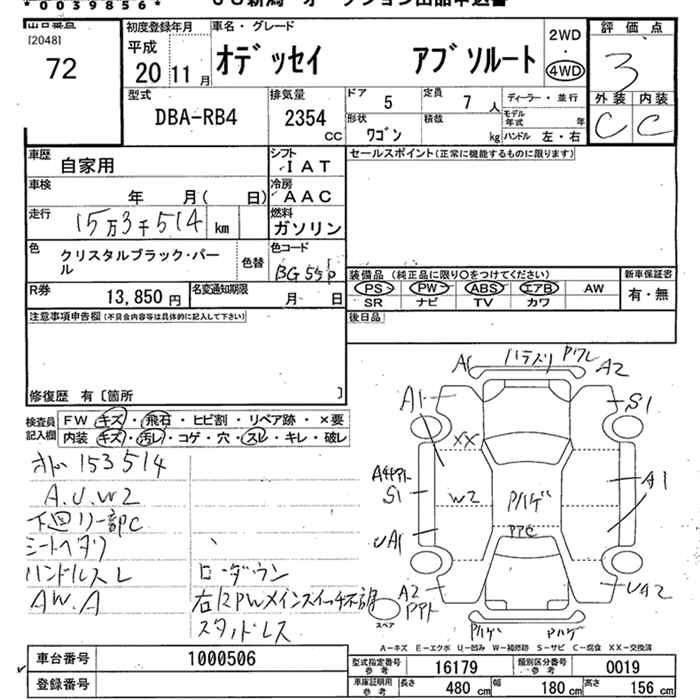 *0039856*
出品番号
[2048]
72
初度登録年月
平成
20 11 月
車名・グレード
オデッセイ アブソルート
2WD
・
4WD
評価点
3
外装 内装
C C
型式
DBA-RB4
排気量
2354
CC
ドア 5
定員 7 人
ディーラー・並行
形状 ワゴン
積載 kg
モデル年式 年
ハンドル 左・右
車歴 自家用
シフト I AT
セールスポイント(正常に機能するものに限ります)
車検 年 月( 日)
冷房 A AC
走行 15万3千514 km
燃料 ガソリン
色 クリスタルブラック・パール
色替
色コード BG55p
装備品 (純正品に限り○をつけてください)
新車保証書
PS PW ABS エアB AW
SR ナビ TV カワ
有・無
R券 13,850 円
名変通知期限 月 日
注意事項申告欄(不具合内容等は具体的に記入して下さい)
後日品
修復歴 有〔箇所 〕
検査員記入欄
FW キズ・飛石・ヒビ割・リペア跡・×要
内装 キズ・汚レ・コゲ・穴・スレ・キレ・破レ
オド 153514
A.U.W2
下回リ一部C
シートヘタリ
ハンドルスレ
AW.A
ローダウン
右12PWメインスイッチ不調
スタッドレス
A1 ハラズリ PワレA2
A1 S1
XX
A4PPト
S1
W2 Pハゲ A1
UA1 PPC
A2
PPト
UA2
Pハゲ Pハゲ
スペア
A-キズ E-エクボ U-凹み W-補修跡 S-サビ C-腐食 XX-交換済
車台番号 1000506
登録番号
型式指定番号参考 16179
類別区分番号参考 0019
車庫証明用参考 長さ 480 cm 幅 180 cm 高さ 156 cm